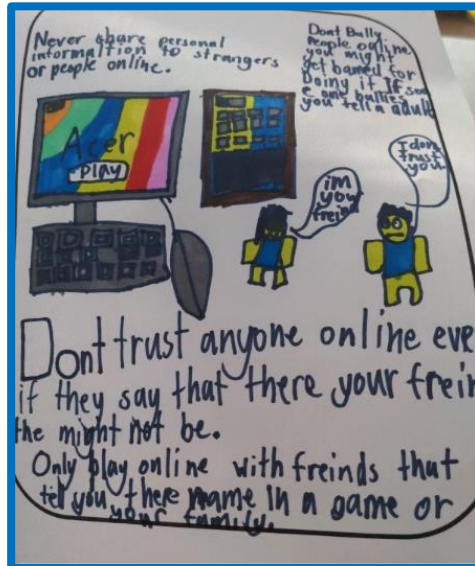 Never share personal
informaltion to strangers
or people online.
Dont Bully.
People online
you might
get banned for
Doing it If som
e one bullies
you tell a adult
Acer
Play
im
your
freind
I dont
trust
you
Dont trust anyone online eve
if they say that there your frein
the might not be.
Only play online with freinds that
tell you there name in a game or
your family.